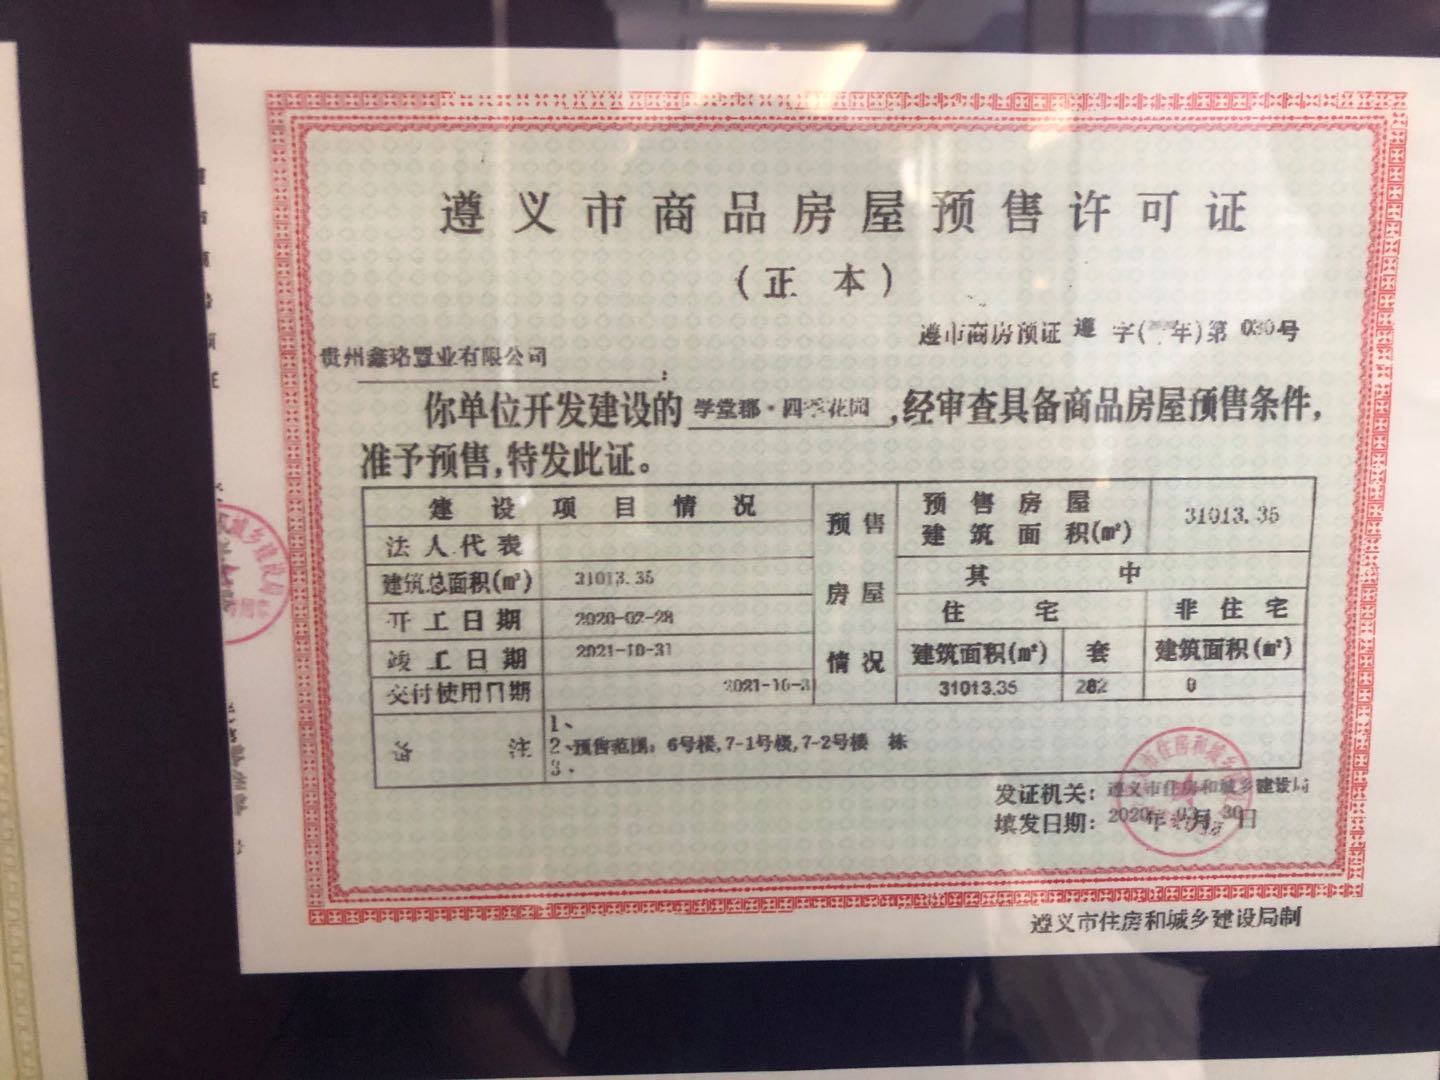 遵义市商品房屋预售许可证
（正 本）
遵市商房预证 遵 字( 年)第 030号
贵州鑫珞置业有限公司：
你单位开发建设的 学堂郡·四季花园 ,经审查具备商品房屋预售条件,
准予预售,特发此证。
建 设 项 目 情 况
法人代表
建筑总面积(㎡) 31013.35
开工日期 2020-02-28
竣工日期 2021-10-31
交付使用日期 2021-10-3
预售
房屋
情况
预售房屋
建筑面积(㎡) 31013.35
其 中
住 宅 非住宅
建筑面积(㎡) 套 建筑面积(㎡)
31013.35 282 0
备 注
1、
2、预售范围：6号楼,7-1号楼,7-2号楼 栋
3、
发证机关：遵义市住房和城乡建设局
填发日期：2020年 03月 30日
遵义市住房和城乡建设局制